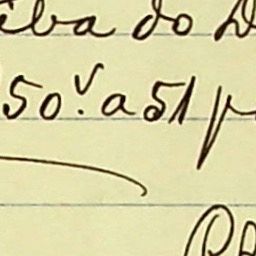 iba do D
50v. a 51 p